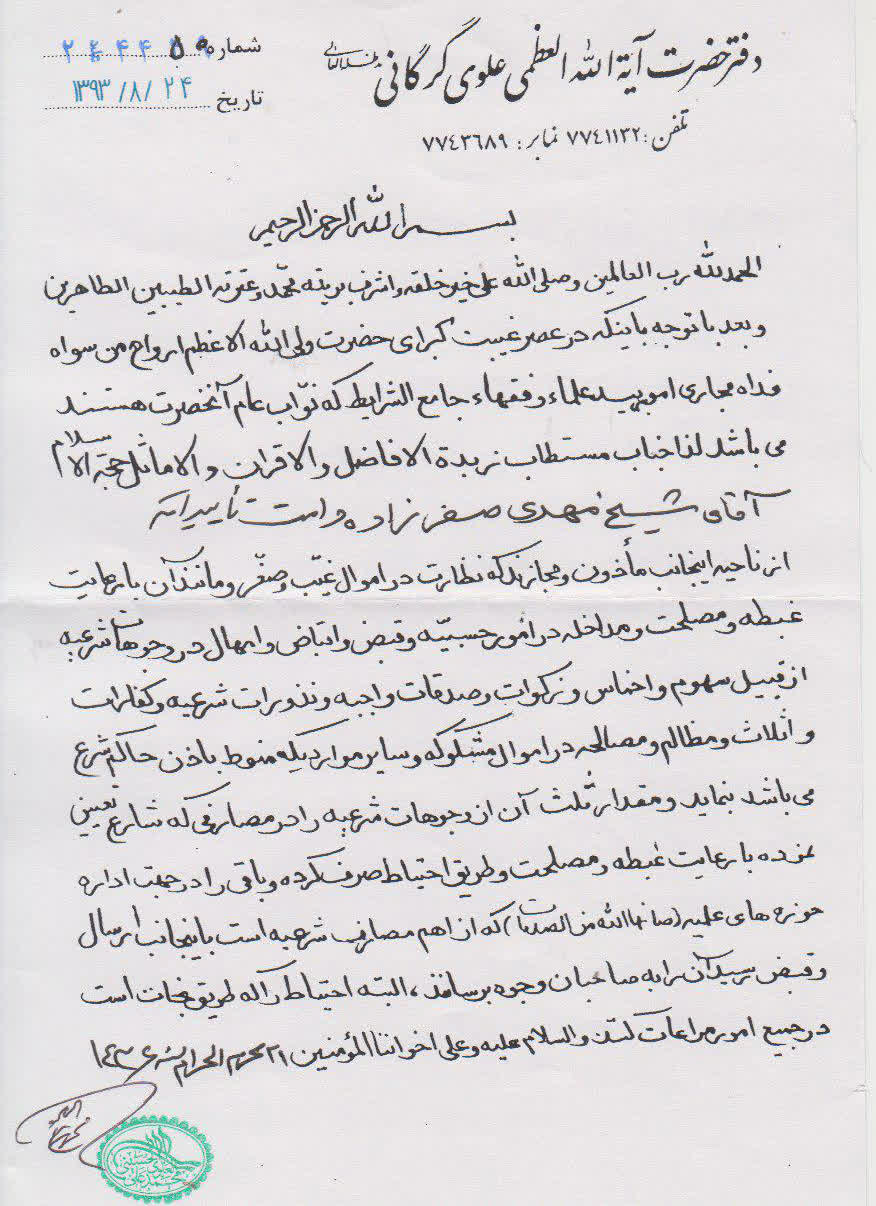 دفتر حضرت آیة الله العظمی علوی گرگانی مد ظله العالی
شماره ۵۰
تاریخ ۱۳۹۳/۸/۲۴
تلفن: ۷۷٤۱۱۳۲ نمابر: ۷۷٤۳۶۸۹
بسم الله الرحمن الرحیم
الحمدلله رب العالمین وصلی الله علی خیر خلقه و اشرف بریته محمد و عترته الطیبین الطاهرین
و بعد با توجه باینکه در عصر غیبت کبرای حضرت ولی الله الاعظم ارواح من سواه
فداه مجاری امور بید علماء و فقهاء جامع الشرایط که نوّاب عام آنحضرت هستند
می باشد لذا جناب مستطاب زبدة الافاضل والاقران و الاماثل حجة الاسلام
آقای شیخ مهدی صفرزاده دامت تأییداته
از ناحیه اینجانب مأذون و مجازند که نظارت در اموال غیّب و صغّر و مانند آن با رعایت
غبطه و مصلحت و مداخله در امور حسبیّه و قبض و اقباض و امهال در وجوهات شرعیه
از قبیل سهوم و اخماس و زکوات و صدقات واجبه و نذورات شرعیه و کفارات
و اثلاث و مظالم و مصالحه در اموال مشکوکه و سایر مواردیکه منوط باذن حاکم شرع
می باشد بنماید و مقدار ثلث آن از وجوهات شرعیه را در مصارفی که شارع تعیین
نموده با رعایت غبطه و مصلحت و طریق احتیاط صرف کرده و باقی را در جهت اداره
حوزه های علمیه (صانها الله من الحدثان) که از اهم مصارف شرعیه است باینجانب ارسال
و قبض رسید آن را به صاحبان وجوه برسانند، البته احتیاط را که طریق نجات است
در جمیع امور مراعات کنند والسلام علیه و علی اخواننا المؤمنین ۲۱ محرم الحرام سنه ۱٤۳۶